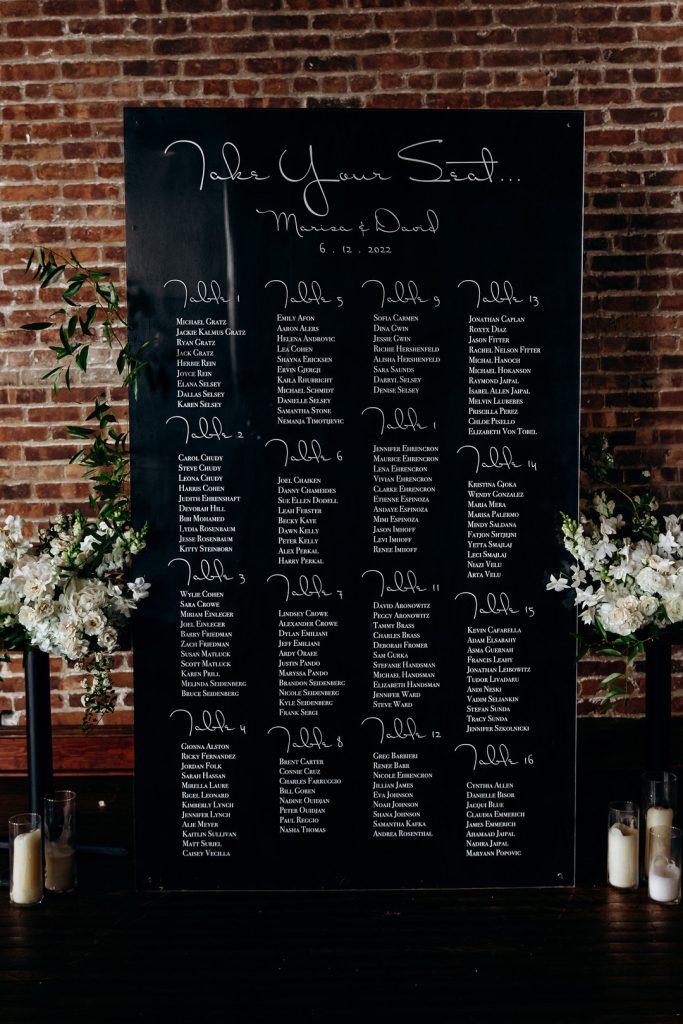 Take Your Seat...
Marisa & David
6 . 12 . 2022
Table 1
Michael Gratz
Jackie Kalmus Gratz
Ryan Gratz
Jack Gratz
Herbie Rein
Joyce Rein
Elana Selsey
Dallas Selsey
Karen Selsey
Table 2
Carol Chudy
Steve Chudy
Leona Chudy
Harris Cohen
Judith Ehrenshaft
Devorah Hill
Bibi Mohamed
Lydia Rosenbaum
Jesse Rosenbaum
Kitty Steinborn
Table 3
Wylie Cohen
Sara Crowe
Miriam Einleger
Joel Einleger
Barry Friedman
Zach Friedman
Susan Matluck
Scott Matluck
Karen Prill
Melinda Seidenberg
Bruce Seidenberg
Table 4
Gionna Alston
Ricky Fernandez
Jordan Folk
Sarah Hassan
Mirella Laure
Rigel Leonard
Kimberly Lynch
Jennifer Lynch
Alie Meyer
Kaitlin Sullivan
Matt Suriel
Caisey Vecilla
Table 5
Emily Afon
Aaron Alers
Helena Androvic
Lea Cohen
Shayna Ericksen
Ervin Gjergji
Kaila Rhubright
Michael Schmidt
Danielle Selsey
Samantha Stone
Nemanja Timotijevic
Table 6
Joel Chaiken
Danny Chameides
Sue Ellen Dodell
Leah Ferster
Becky Kaye
Dawn Kelly
Peter Kelly
Alex Perkal
Harry Perkal
Table 7
Lindsey Crowe
Alexander Crowe
Dylan Emiliani
Jeff Emiliani
Ardy Oraee
Justin Pando
Maryssa Pando
Brandon Seidenberg
Nicole Seidenberg
Kyle Seidenberg
Frank Sergi
Table 8
Brent Carter
Connie Cruz
Charles Farruggio
Bill Goren
Nadine Ouidjan
Peter Ouidjan
Paul Reggio
Nasha Thomas
Table 9
Sofia Carmen
Dina Gwin
Jessie Gwin
Richie Hershenfeld
Alisha Hershenfeld
Sara Saunds
Darryl Selsey
Denise Selsey
Table 1
Jennifer Ehrencron
Maurice Ehrencron
Lena Ehrencron
Vivian Ehrencron
Clarke Ehrencron
Etienne Espinoza
Andaye Espinoza
Mimi Espinoza
Jason Imhoff
Levi Imhoff
Renee Imhoff
Table 11
David Aronowitz
Peggy Aronowitz
Tammy Brass
Charles Brass
Deborah Fromer
Sam Gurka
Stefanie Handsman
Michael Handsman
Elizabeth Handsman
Jennifer Ward
Steve Ward
Table 12
Greg Barbieri
Renee Barr
Nicole Ehrencron
Jillian James
Eva Johnson
Noah Johnson
Shana Johnson
Samantha Kafka
Andrea Rosenthal
Table 13
Jonathan Caplan
Roxyx Diaz
Jason Fitter
Rachel Nelson Fitter
Michal Hanoch
Michael Hokanson
Raymond Jaipal
Isabel Allen Jaipal
Melvin Lluberes
Priscilla Perez
Chloe Pisello
Elizabeth Von Tobel
Table 14
Kristina Gjoka
Wendy Gonzalez
Maria Mera
Marisa Palermo
Mindy Saldana
Fatjon Shtjejni
Yetta Smajlaj
Leci Smajlaj
Niazi Velu
Arta Velu
Table 15
Kevin Cafarella
Adam Elsabahy
Asma Guernah
Francis Leahy
Jonathan Leibowitz
Tudor Livadaru
Andi Neski
Vadim Seliankin
Stefan Sunda
Tracy Sunda
Jennifer Szkolnicki
Table 16
Cynthia Allen
Danielle Bisor
Jacqui Blue
Claudia Emmerich
James Emmerich
Ahamaad Jaipal
Nadira Jaipal
Maryann Popovic